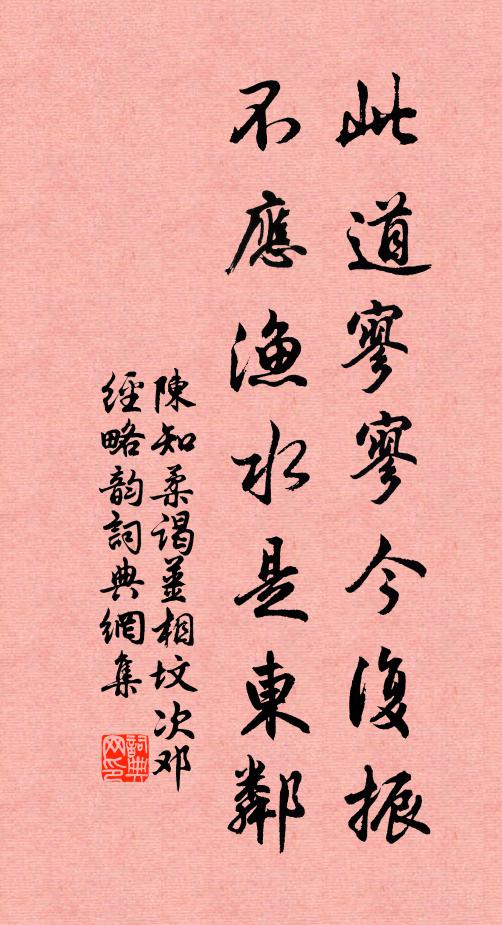 此道寥寥今復振
不應漁水是東鄰
陳知柔謁姜相墳次邓
經略韵詞典網集
詞典网印